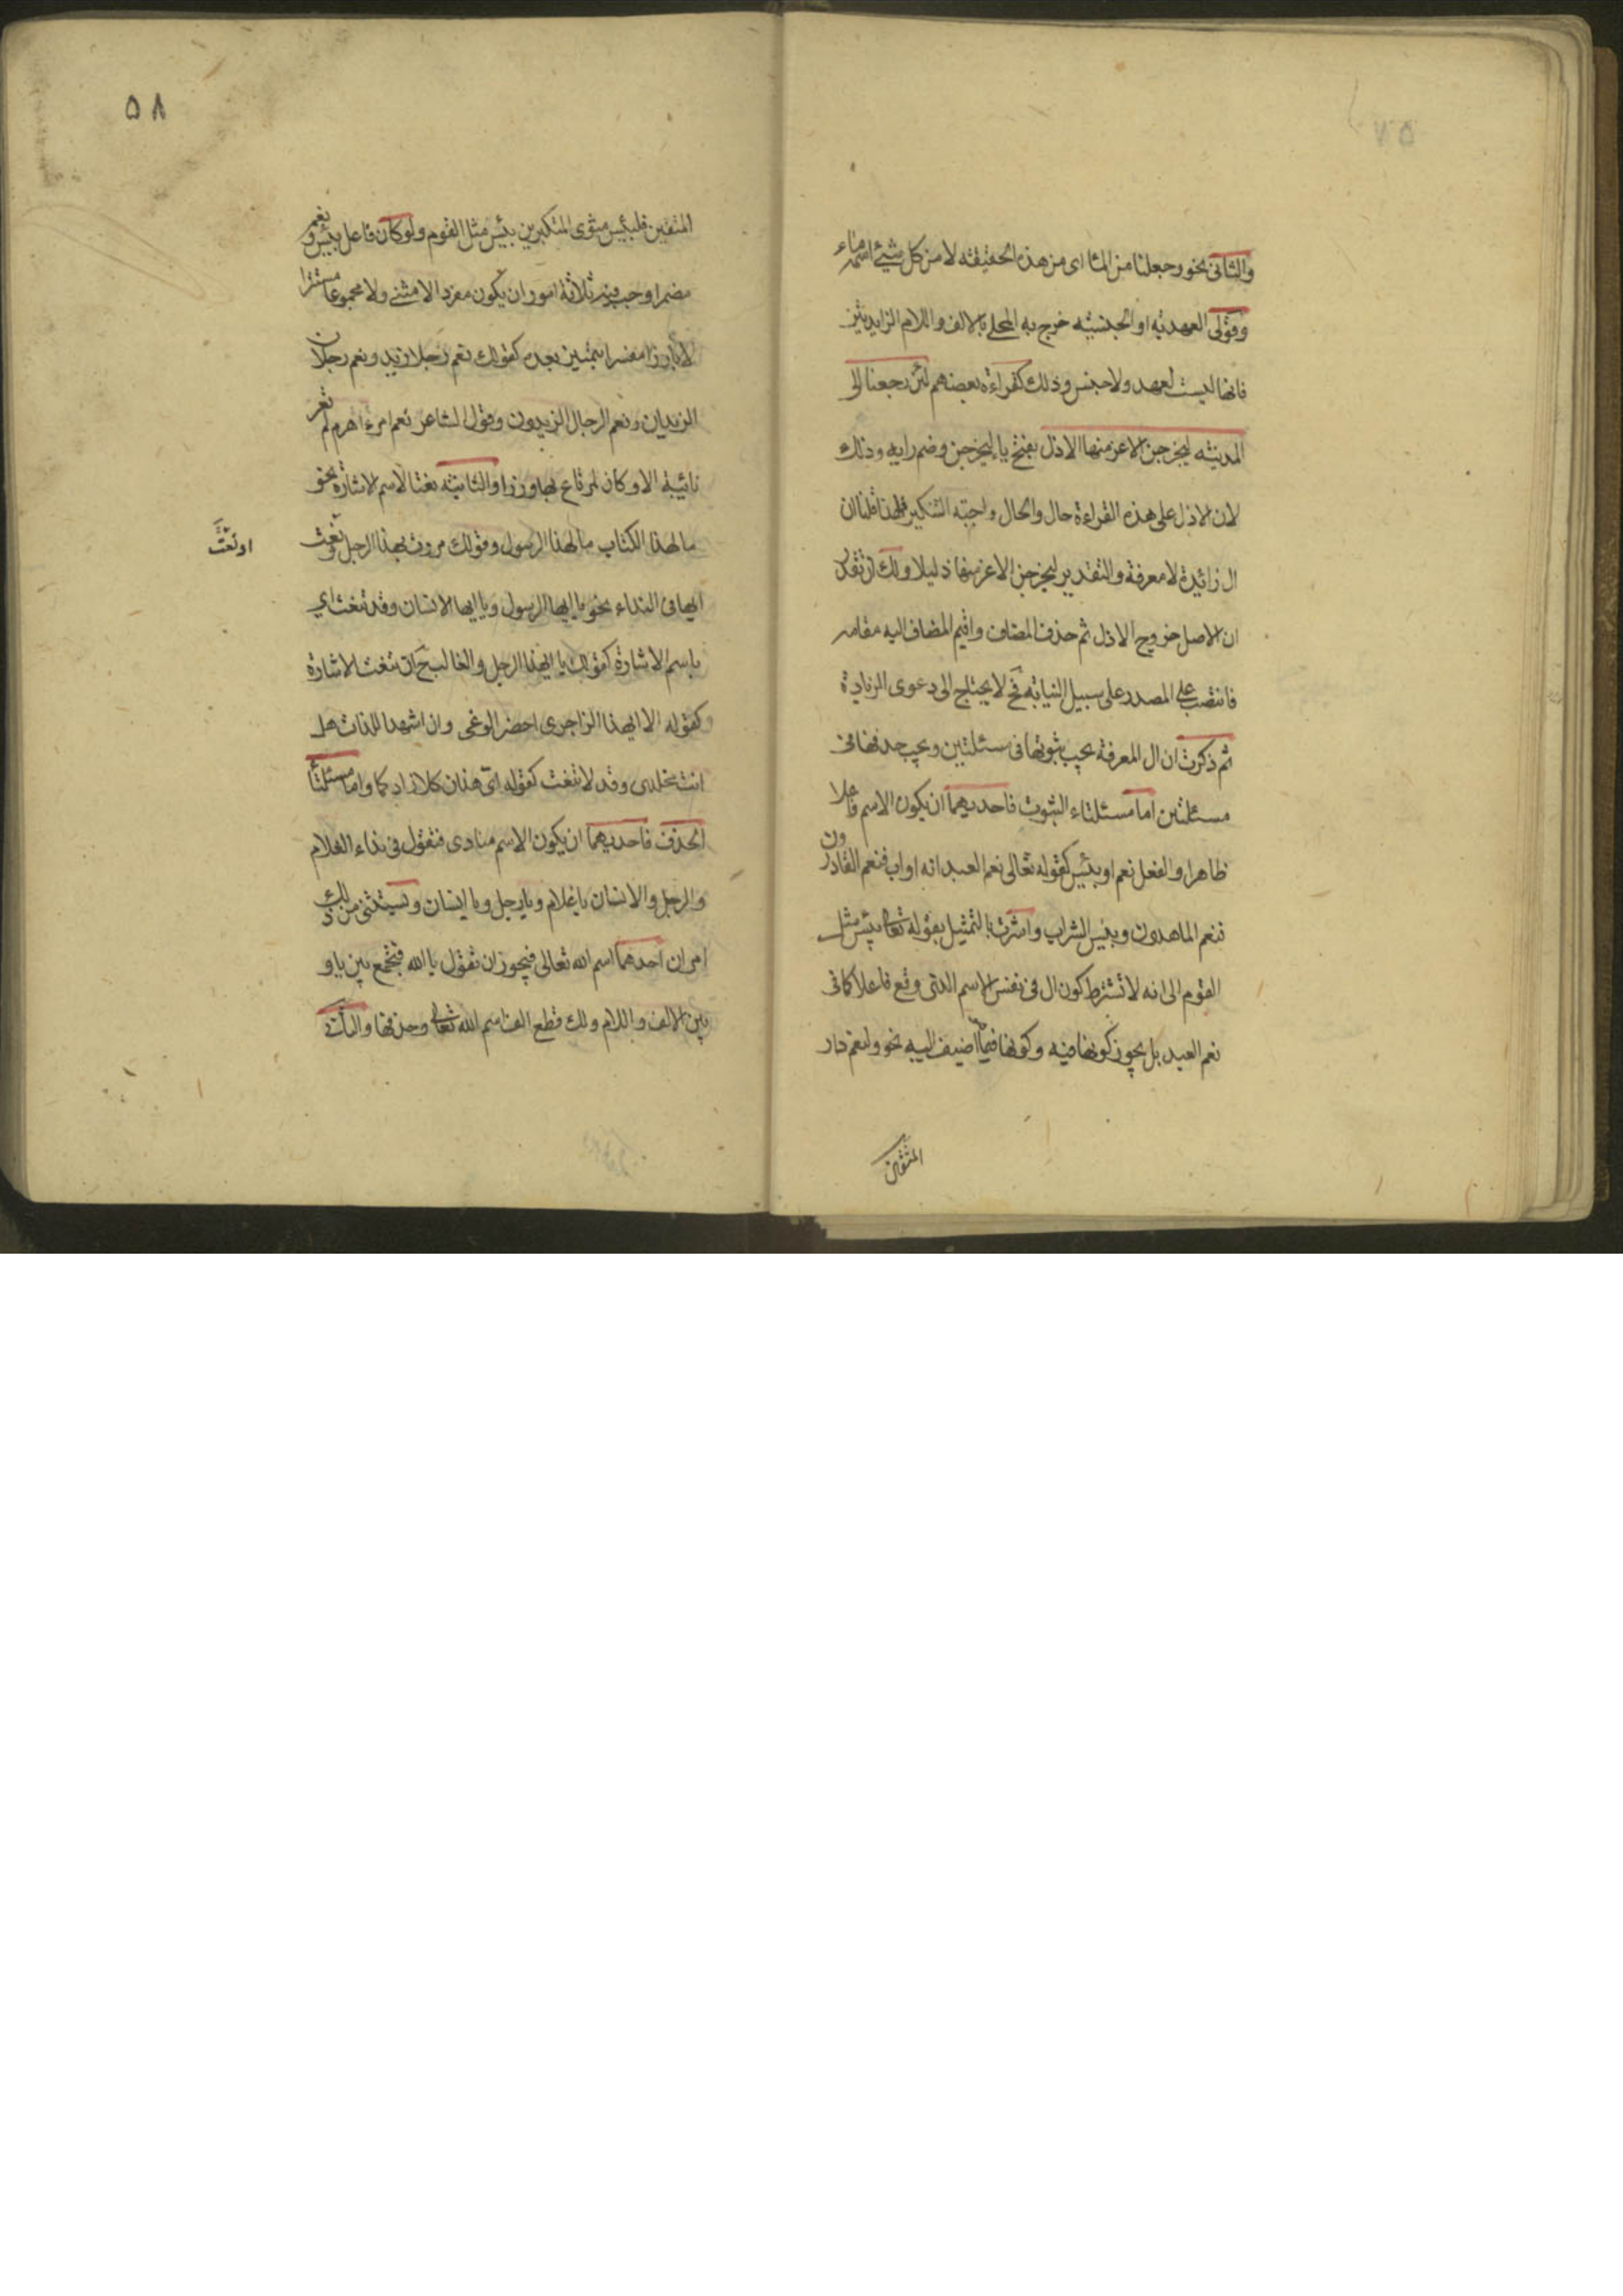 والثانى نحو وجعلنا من الماء اى من هذه الحقيقة لا من كل شيئ اسمه ماء
وقولى العهديه او الجنسيه خرج به المحلى بالالف واللام الزايدتين
فانها ليست لعهد ولا جنس وذلك كقراءة بعضهم لئن رجعنا الى
المدينه ليخرجن الاعز منها الاذل بفتح ياء ليخرجن وضم رايه وذلك
لان الاذل على هذه القراءة حال والحال واجبة التنكير فلهذا قلنا ان
ال زائدة لا معرفة والتقدير ليخرجن الاعز منها ذليلا ولك ان تقدر
ان الاصل خروج الاذل ثم حذف المضاف واقيم المضاف اليه مقامه
فانتصب على المصدر على سبيل النيابه فح لا يحتاج الى دعوى الزيادة
ثم ذكرت ان ال المعرفة يجب ثبوتها فى مسئلتين ويجب حذفها فى
مسئلتين اما مسئلتاء الثبوت فاحديهما ان يكون الاسم فاعلا
ظاهرا والفعل نعم او بئس كقوله تعالى نعم العبد انه اواب فنعم القادرون
فنعم الماهدون وبئس الشراب واشرت بالتمثيل بقوله تعالى بئس مثل
القوم الى انه لا تشترط كون ال فى نفس الاسم الذى وقع فاعلا كما فى
نعم العبد بل يجوز كونها فيه وكونها فيما اضيف اليه نحو ولنعم دار
المتقين
٥٨
المتقين فلبئس مثوى المتكبرين بئس مثل القوم ولو كان فاعل بئس ونعم
مضمرا وجب فيه ثلاثة امور ان يكون مفردا لا مثنى ولا مجموعا مستترا
لا بارزا مفسرا بتمييز بعده كقولك نعم رجلا زيد ونعم رجلان
الزيدان ونعم الرجال الزيدون وقول الشاعر نعم امرءا هرم لم تعر
نائبة الا وكان لمرتاع بها وزرا والثانيه نعتا لاسم الاشارة نحو
مالهذا الكتاب مالهذا الرسول وقولك مررت بهذا الرجل ونعت
او نعت
ايها فى النداء نحو يا ايها الرسول ويا ايها الانسان وقد تنعت اي
باسم الاشارة كقولك يا ايهذا الرجل والغالب ح ان تنعت الاشارة
وكقوله الا ايهذا الزاجرى احضر الوغى وان اشهد اللذات هل
انت مخلدى وقد لا تنعت كقوله اى هذان كلا زاد كما واما مسئلتا
الحذف فاحديهما ان يكون الاسم منادى فتقول فى نداء الغلام
والرجل والانسان يا غلام ويا رجل ويا انسان وتستثنى من ذلك
امران احدهما اسم الله تعالى فيجوز ان تقول يا الله فتجمع بين يا و
بين الالف واللام ولك قطع الف اسم الله تعالى وحذفها والثانى